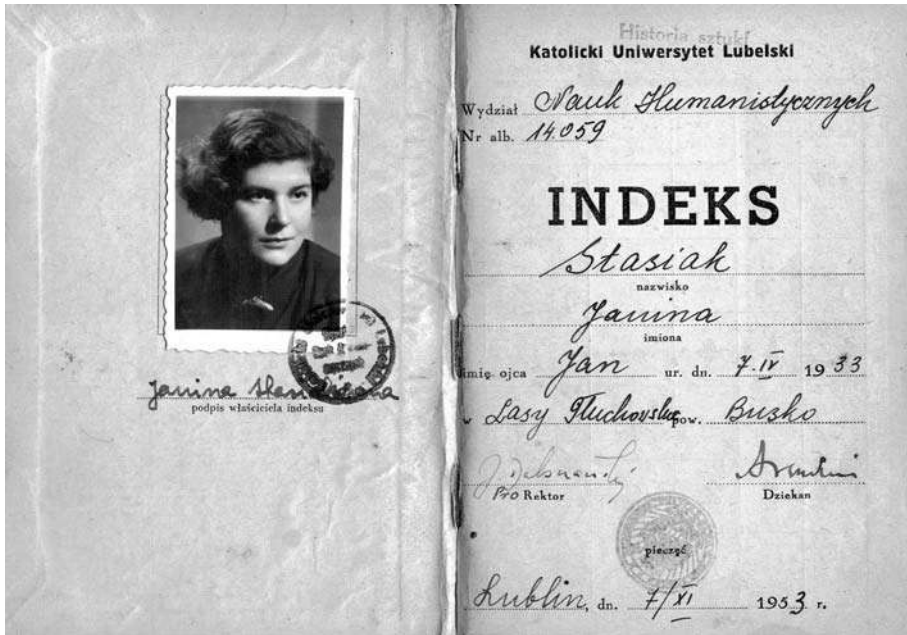 Janina
podpis właściciela indeksu
Historia sztuki
Katolicki Uniwersytet Lubelski
Wydział Nauk Humanistycznych
Nr alb. 14059
INDEKS
Stasiak
nazwisko
Janina
imiona
imię ojca Jan ur. dn. 7.IV 1933
w Lasy Tłuchovskie pow. Busko
Pro Rektor Dziekan
pieczęć
Lublin, dn. 7/XI 1953 r.